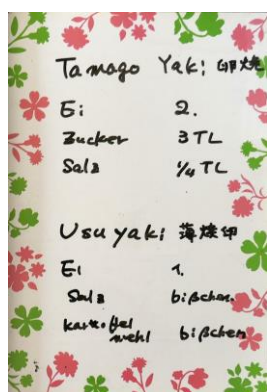 Tamago Yaki 卵焼
Ei 2.
Zucker 3 TL
Salz ¼ TL
Usuyaki 薄焼卵
Ei 1.
Salz bißchen.
Kartoffel
mehl bißchen